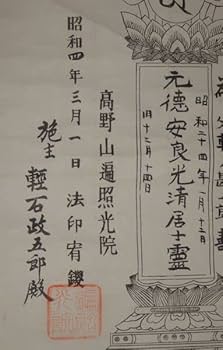 昭和二十四年一月十二日
元德安良光清居士霊
旧十二月十四日
高野山遍照光院
昭和四年三月一日 法印宥鑁
施主 輕石政五郎殿